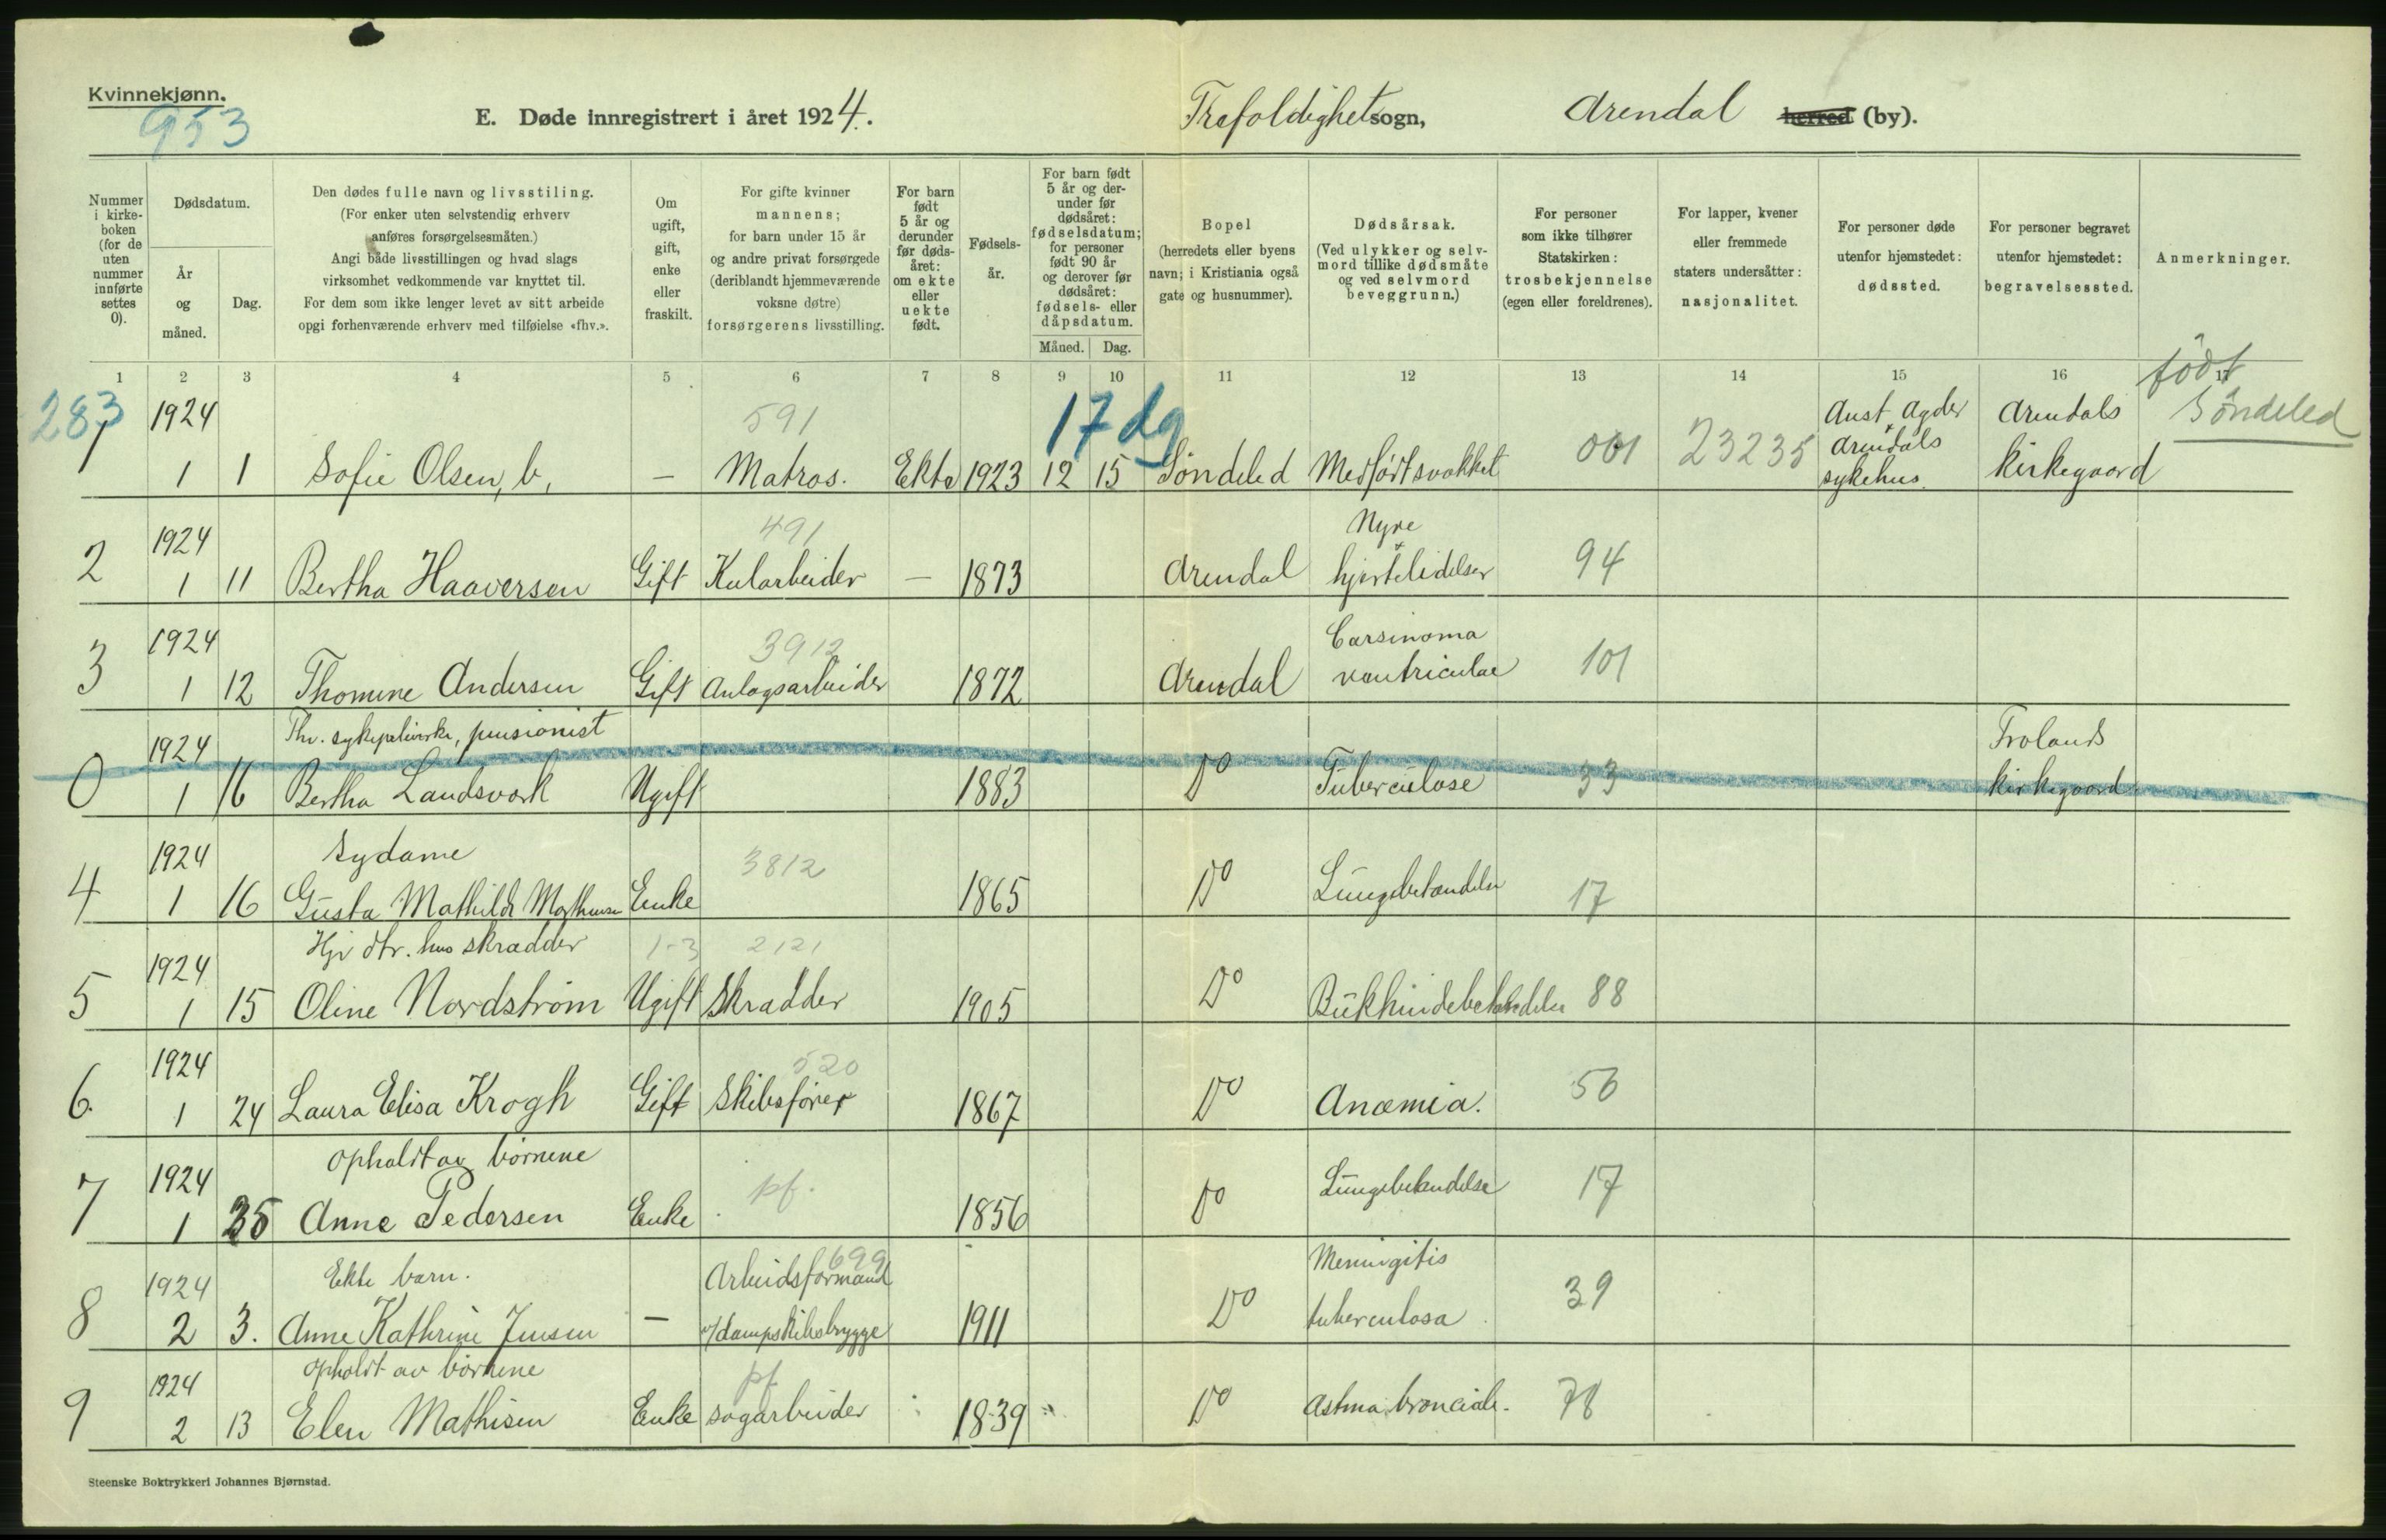 Kvinnekjønn.
953
E. Døde innregistrert i året 1924.
Trefoldighetsogn, Arendal herred (by).
Nummer i kirkeboken (for de uten nummer innførte settes 0).
Dødsdatum.
År og måned.
Dag.
Den dødes fulle navn og livsstiling.
(For enker uten selvstendig erhverv
anføres forsørgelsesmåten.)
Angi både livsstillingen og hvad slags
virksomhet vedkommende var knyttet til.
For dem som ikke lenger levet av sitt arbeide
opgi forhenværende erhverv med tilføielse «fhv.».
Om ugift, gift, enke eller fraskilt.
For gifte kvinner
mannens;
for barn under 15 år
og andre privat forsørgede
(deriblandt hjemmeværende
voksne døtre)
forsørgerens livsstilling.
For barn født 5 år og derunder før dødsåret: om ekte eller uekte født.
Fødselsår.
For barn født 5 år og derunder før dødsåret: fødselsdatum; for personer født 90 år og derover før dødsåret: fødsels- eller dåpsdatum.
Måned. Dag.
Bopel
(herredets eller byens
navn; i Kristiania også
gate og husnummer).
Dødsårsak.
(Ved ulykker og selvmord tillike dødsmåte og ved selvmord beveggrunn.)
For personer
som ikke tilhører
Statskirken:
trosbekjennelse
(egen eller foreldrenes).
For lapper, kvener
eller fremmede
staters undersåtter:
nasjonalitet.
For personer døde
utenfor hjemstedet:
dødssted.
For personer begravet
utenfor hjemstedet:
begravelsessted.
Anmerkninger.
1 2 3 4 5 6 7 8 9 10 11 12 13 14 15 16 17
283 1924 591 17 dg Aust Agder Arendals født
1 1 1 Sofie Olsen, b, — Matros. Ekte 1923 12 15 Søndeled Medfødt svakhet 001 23235 Arendals sykehus. kirkegaard Søndeled
1924 491 Nyre
2 1 11 Bertha Haaversen Gift Kularbeider — 1873 Arendal hjertelidelser 94
1924 3912 Carsinoma
3 1 12 Thomine Andersen Gift Anlagsarbeider 1872 Arendal ventriculae 101
1924 Fhv. sykepleierske, pensionist Frolands
0 1 16 Bertha Landsverk Ugift 1883 Do Tuberculose 33 kirkegaard
1924 Sydame 3812
4 1 16 Gusta Mathilde Mathisen Enke 1865 Do Lungebetændelse 17
1924 Hjv dtr. hos skrædder 1-3 2121
5 1 15 Oline Nordstrøm Ugift Skrædder 1905 Do Bukhindebetændelse 88
1924 520
6. 1 24 Laura Elisa Krogh Gift Skibsfører 1867 Do Anæmia. 56
1924 opholdt av børnene pf.
7 1 25 Anne Pedersen Enke 1856 Do Lungebetændelse 17
1924 Ekte barn. Arbeidsformand 699 Meningitis
8 2 3. Anne Kathrine Jensen — v/dampskibsbrygge 1911 Do tuberculosa 39
1924 opholdt av børnene pf
9 2 13 Elen Mathisen Enke sagarbeider 1839 Do Astma bronciale. 78
Steenske Boktrykkeri Johannes Bjørnstad.